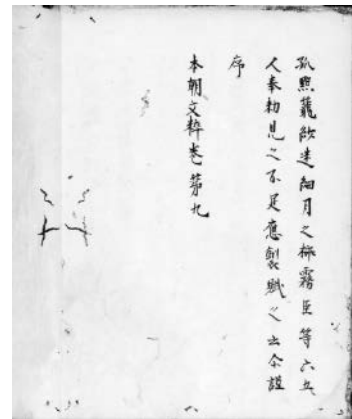 孤照蘿欲迷細月之橡霧臣等六五
人奉勅見之不足應製賦之云尒謹
序
本朝文粹卷第九